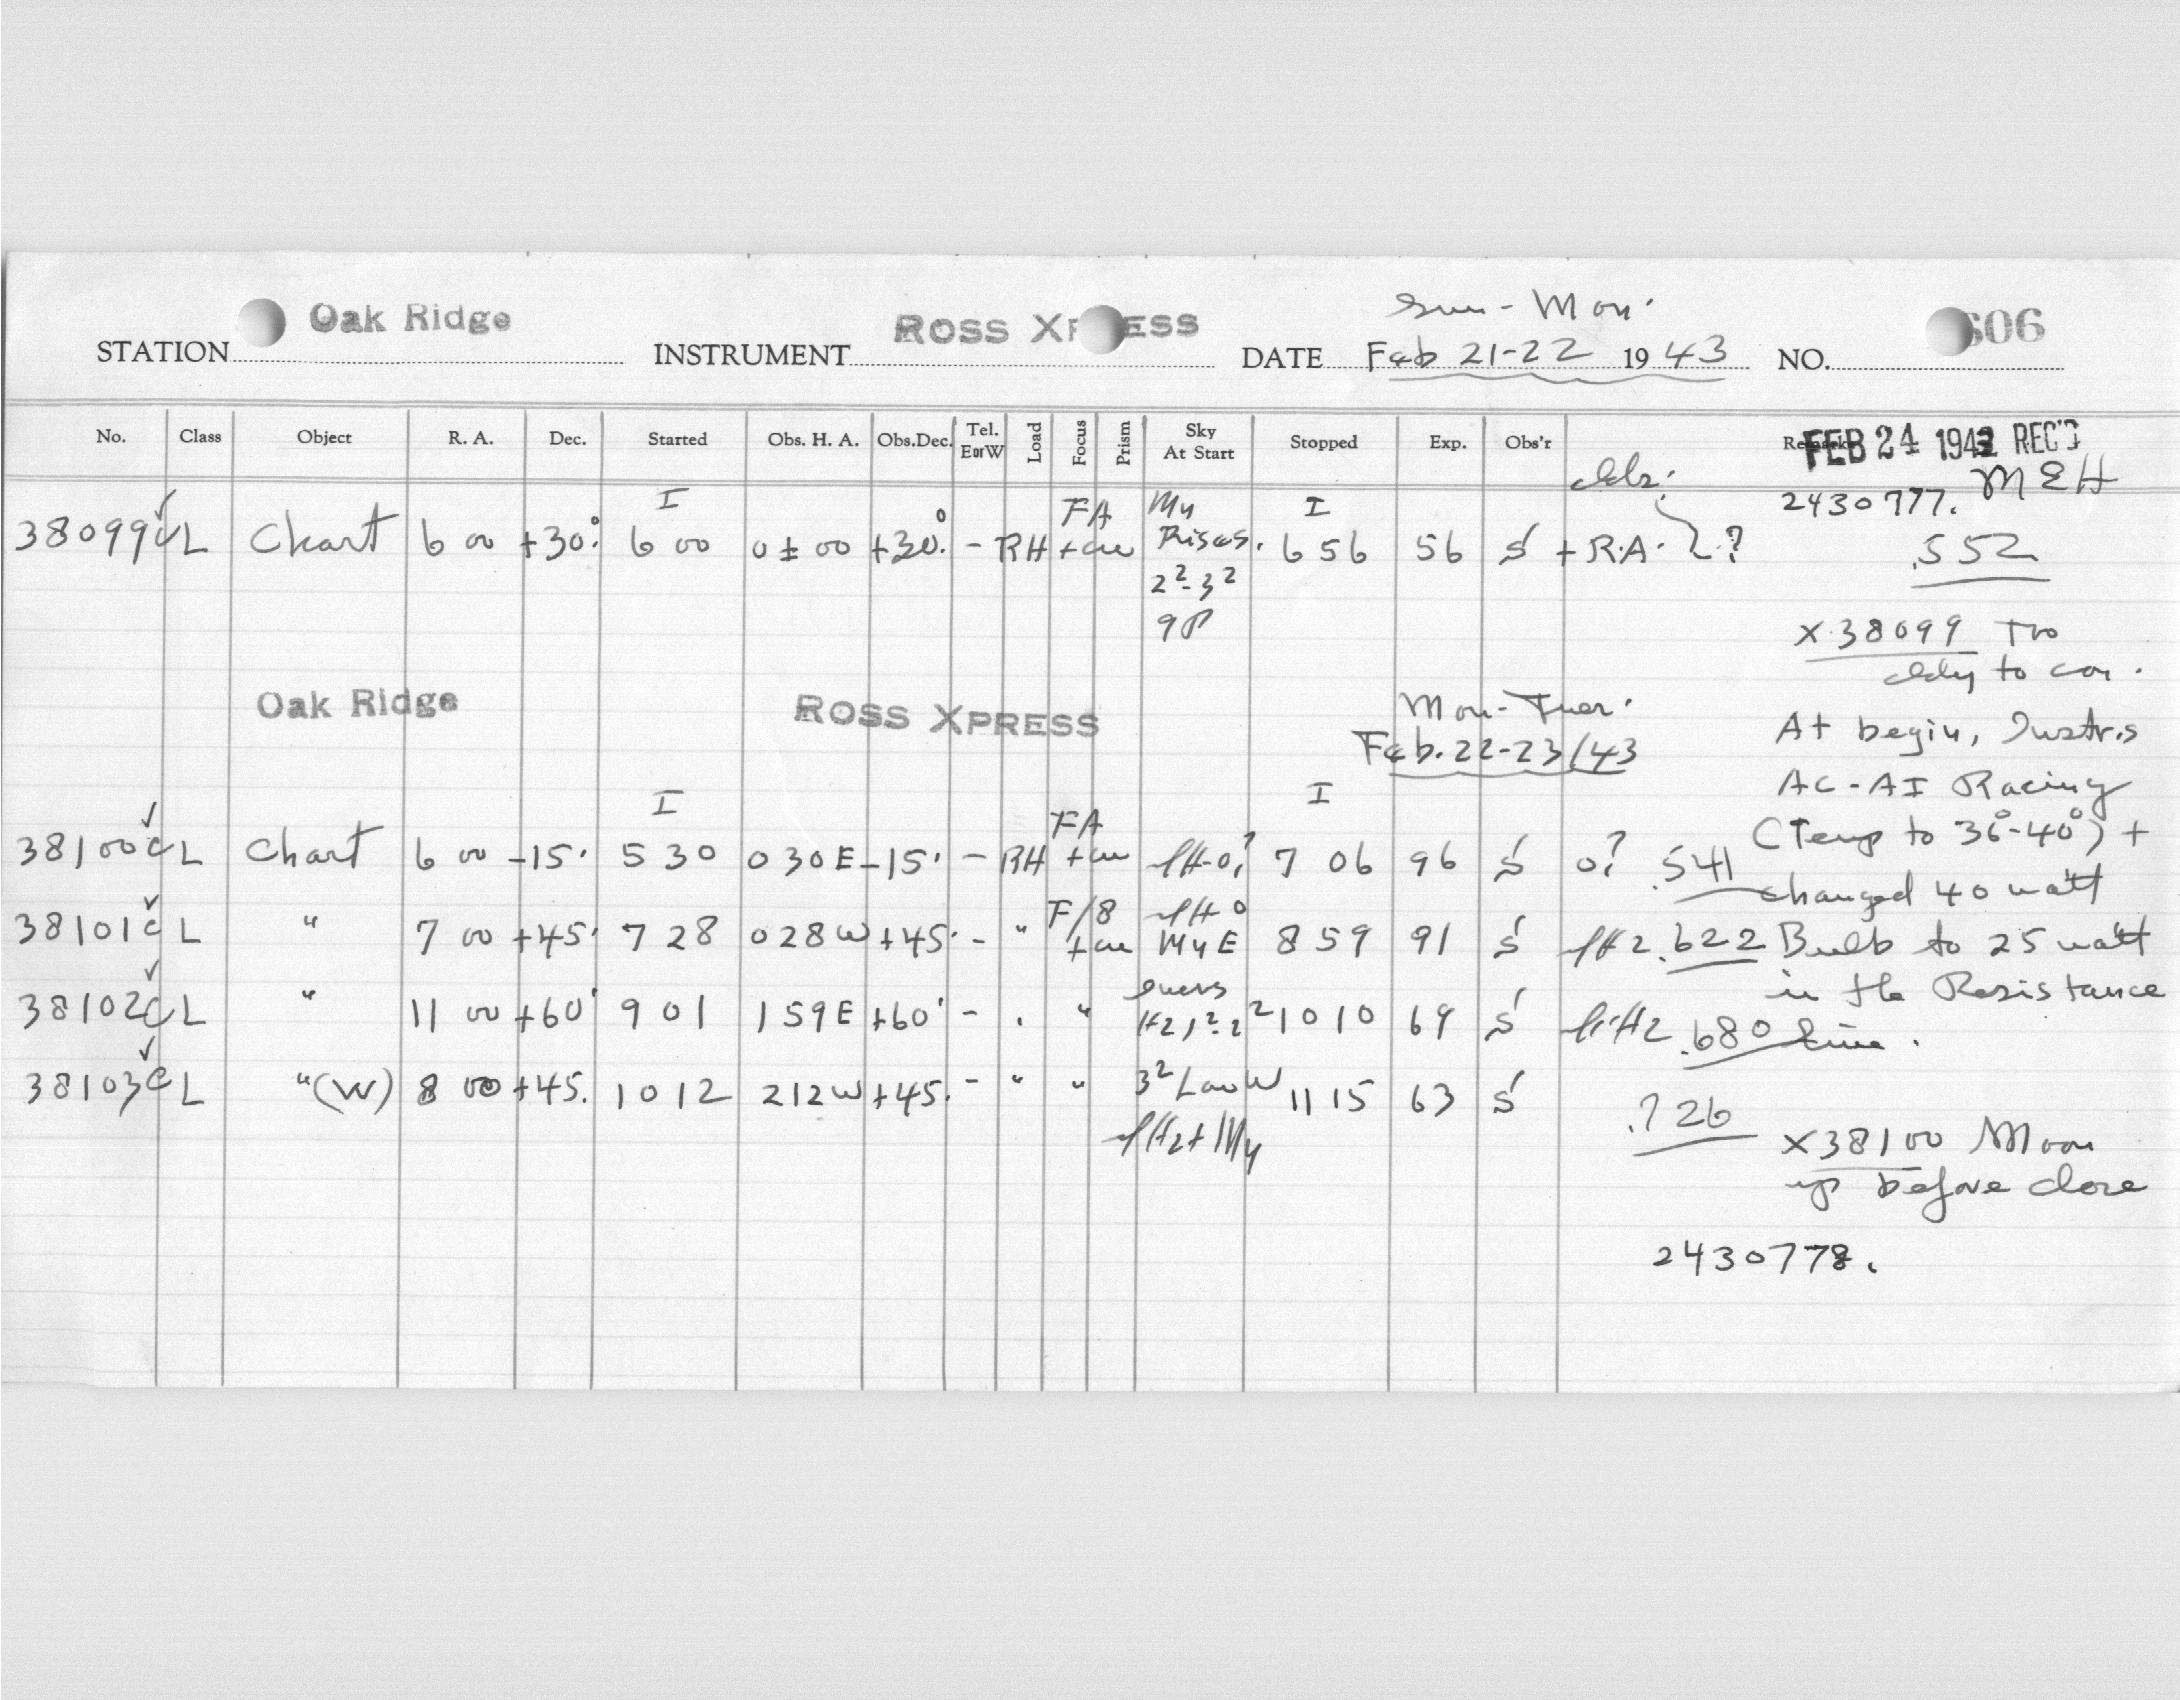 Oak Ridge ROSS XPRESS Sun-Mon. 606
STATION INSTRUMENT DATE Feb 21-22 1943 NO.
No. Class Object R. A. Dec. Started Obs. H. A. Obs.Dec. Tel. E or W Load Focus Prism Sky At Start Stopped Exp. Obs'r Remarks
FEB 24 1943 REC'D
MEH
2430777.
I FA My I
38099 C L Chart 6 00 +30° 6 00 0 ± 00 +30° - RH + Rises. 6 56 56 S + R.A. ? .552
2²-3²
9P
X 38099 Too
cldy to con.
Oak Ridge ROSS XPRESS Mon-Tues.
Feb. 22-23/43
At begin, Instr.s
AC-AI Racing
(Temp to 36°-40°) +
I FA I
38100 C L Chart 6 00 -15. 5 30 0 30 E -15. - RH + 7 06 96 S 0? .541
changed 40 watt
F/8
38101 C L " 7 00 +45. 7 28 0 28 W +45. - " + My E 8 59 91 S .622
Bulb to 25 watt
in the Resistance
38102 C L " 11 00 +60 9 01 1 59 E +60 - . " 10 10 69 S .680
Line.
38103 C L "(W) 8 00 +45. 10 12 2 12 W +45. - " " 3² Low W 11 15 63 S .726
X38100 Moon
up before close
2430778.